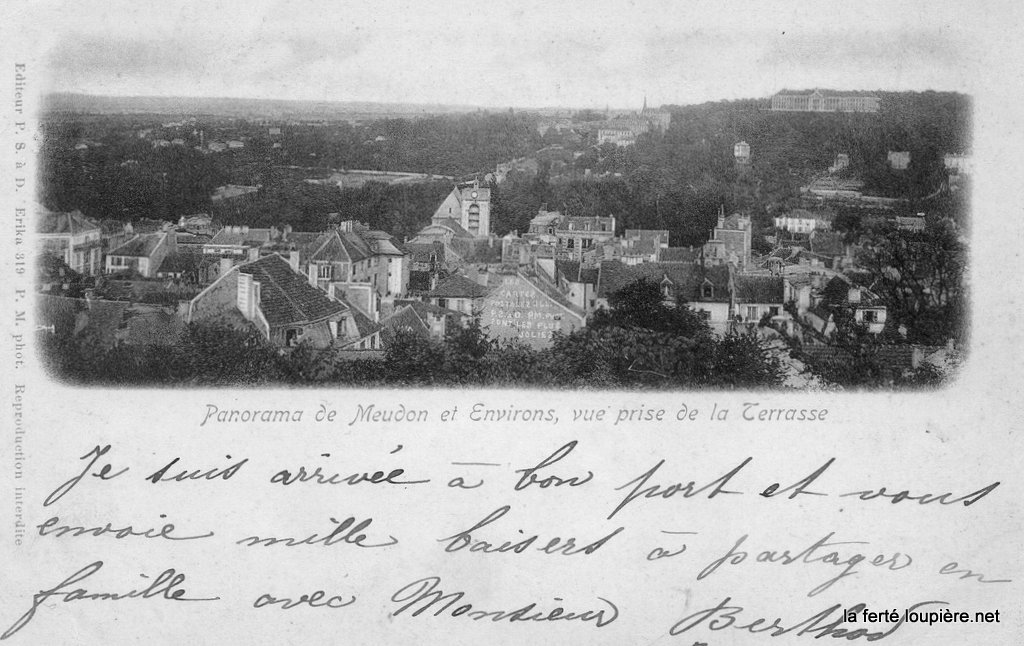 Editeur P. S. à D. Erika 319 P. M. phot. Reproduction interdite
LES
CARTES
POSTALES ILL.
P.S. à D. P.M.
SONT LES PLUS
JOLIES
Panorama de Meudon et Environs, vue prise de la Terrasse
Je suis arrivée à bon port et vous
envoie mille baisers à partager en
famille avec Monsieur Berthod
la ferté loupière.net